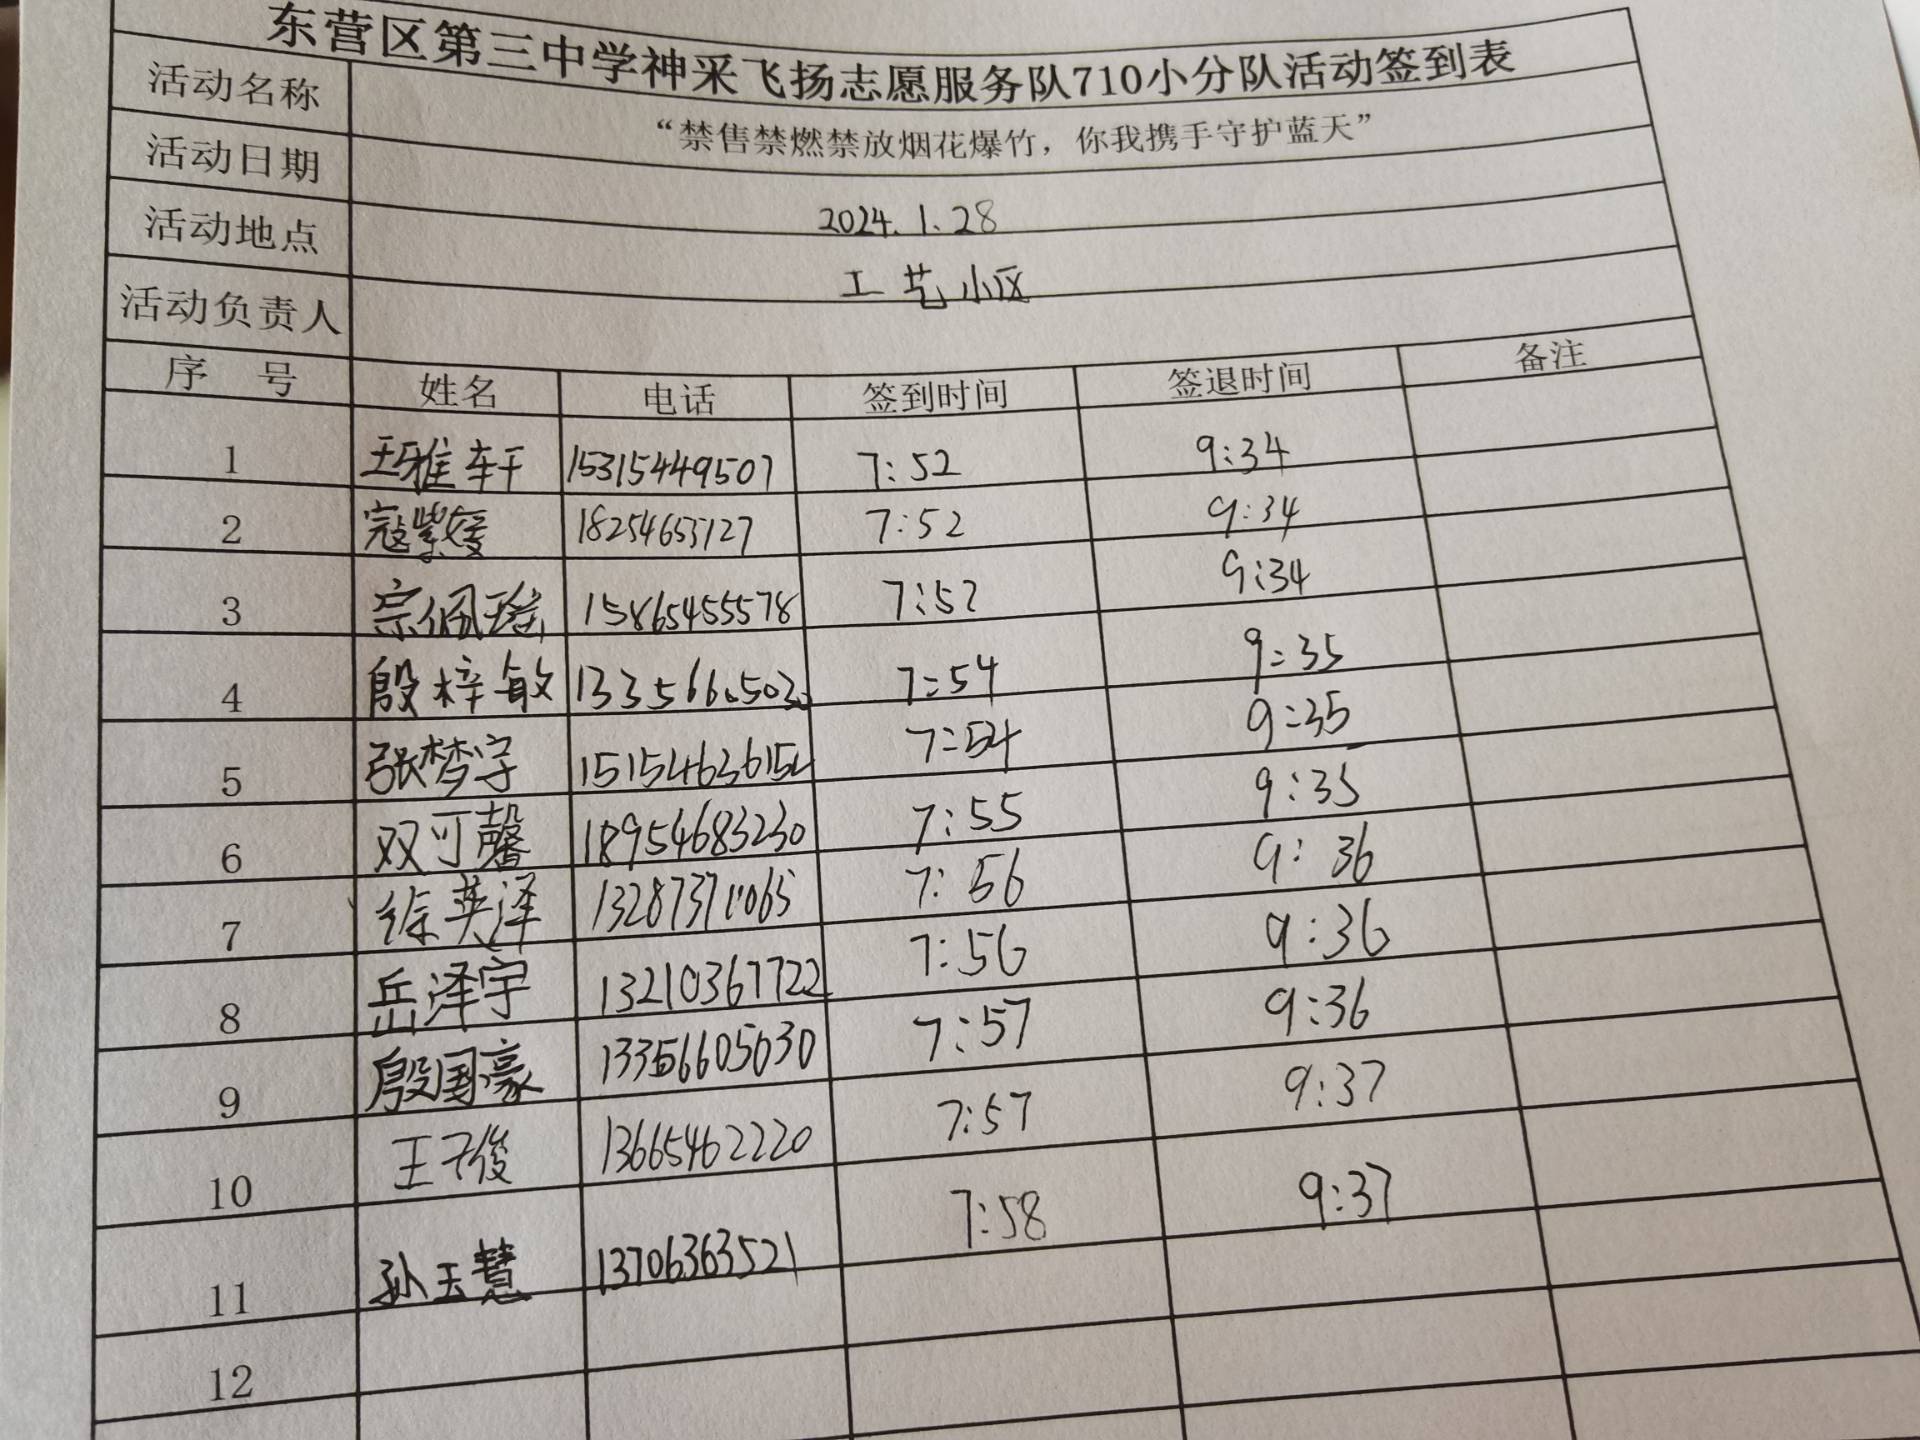 东营区第三中学神采飞扬志愿服务队710小分队活动签到表
活动名称 “禁售禁燃禁放烟花爆竹，你我携手守护蓝天”
活动日期 2024.1.28
活动地点 工艺小区
活动负责人
序 号 姓名 电话 签到时间 签退时间 备注
1 王雅轩 15315449507 7:52 9:34
2 寇紫媛 18254653727 7:52 9:34
3 宗佩瑶 15865455578 7:52 9:34
4 殷梓敏 13356605030 7:54 9:35
5 张梦宇 7:54 9:35
6 双可馨 18954683230 7:55 9:35
7 徐英泽 13287371065 7:56 9:36
8 岳泽宇 13210367722 7:56 9:36
9 殷国豪 13356605030 7:57 9:36
10 王子俊 13665462220 7:57 9:37
11 孙玉慧 13706363521 7:58 9:37
12